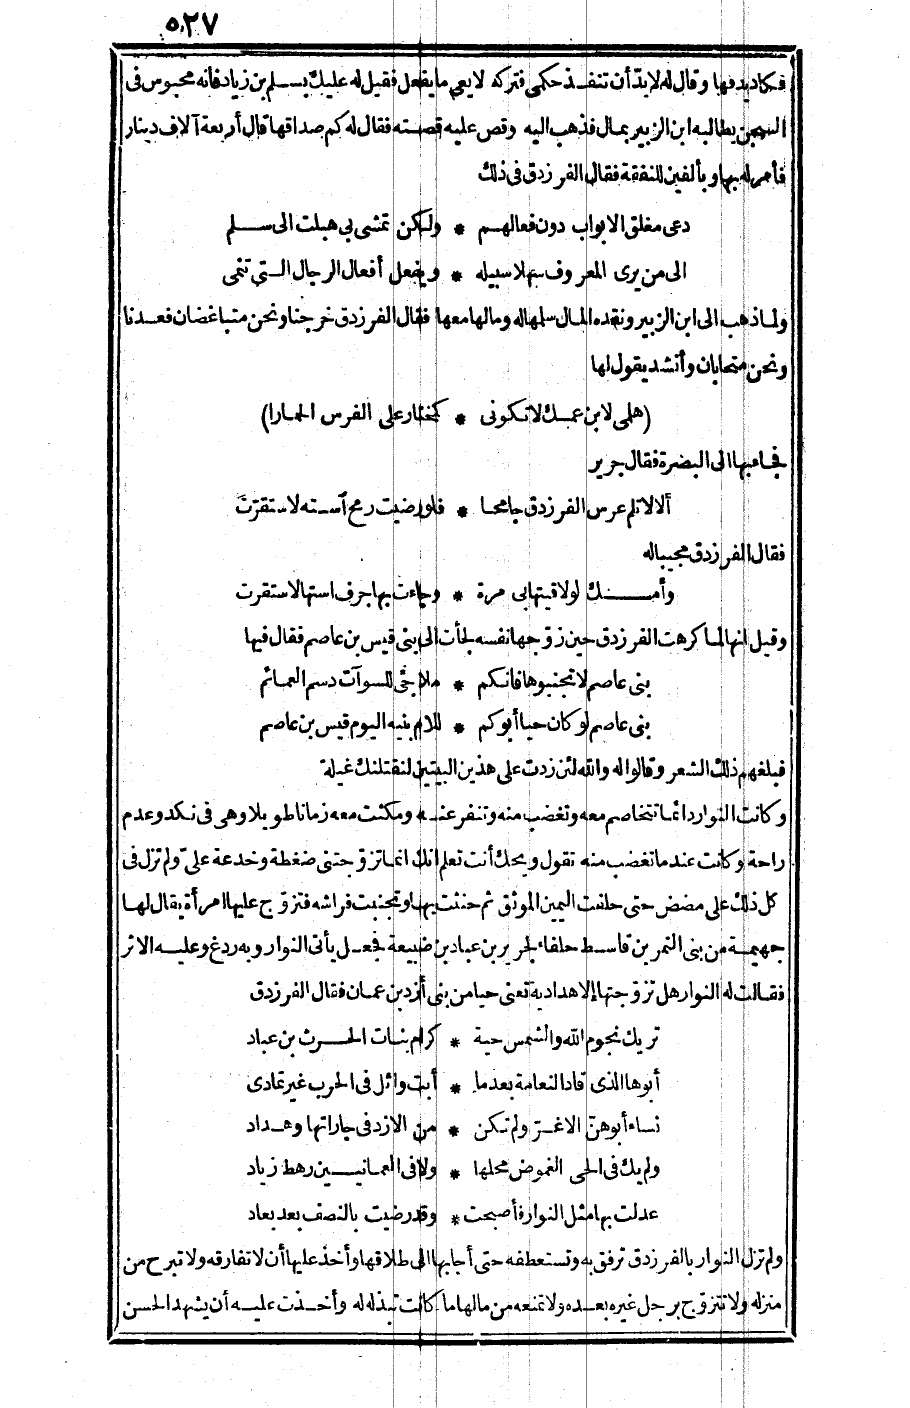 ٥٢٧
فكاد يدفها وقال له لا بد أن تنفذ حكمى فتركه لا يعى ما يفعل فقيل له عليك بسلم بن زياد فانه محبوس فى
السجن يطالبه ابن الزبير بمال فذهب اليه وقص عليه قصته فقال له كم صداقها قال أربعة آلاف دينار
فأمر له بها وبألفين للنفقة فقال الفرزدق فى ذلك
دعى مغلق الابواب دون فعالهم * ولكن تمشى بى هبلت الى سلم
الى من يرى المعروف سهلا سبيله * ويفعل أفعال الرجال التى تنمى
ولما ذهب الى ابن الزبير ونقده المال سلمها له ومالها معها فقال الفرزدق خرجنا ونحن متباغضان فعدنا
ونحن متحابان وأنشد يقول لها
(هلمى لابن عمك لا تكونى * كمختار على الفرس الحمارا)
فجاء بها الى البصرة فقال جرير
ألا لا تلم عرس الفرزدق جامحا * فلو رضيت رمح آسته لاستقرّت
فقال الفرزدق مجيبا له
وأمــك لو لاقيتها بى مرة * وجاءت بها جرف استها لاستقرت
وقيل انها لما كرهت الفرزدق حين زوّجها نفسه لجأت الى بنى قيس بن عاصم فقال فيها
بنى عاصم لا تجنبوها فانكم * ملاجئ للسوآت دسم العمائم
بنى عاصم لو كان حيا أبوكم * للام بنيه اليوم قيس بن عاصم
فبلغهم ذلك الشعر وقالوا له والله لئن زدت على هذين البيتين لنقتلنك غيلة
وكانت النوار دائما تتخاصم معه وتغضب منه وتنفر عنه ومكثت معه زمانا طويلا وهى فى نكد وعدم
راحة وكانت عندما تغضب منه تقول ويحك أنت تعلم انك انما تزوّجتنى ضغطة وخدعة علىّ ولم تزل فى
كل ذلك على مضض حتى حلفت اليمين الموثق ثم حنثت بها وتجنبت فراشه فتزوّج عليها امرأة يقال لها
جهيمة من بنى النمر بن قاسط حلفاء لجرير بن عباد بن ضبيعة فجعل يأتى النوار وبه ردغ وعليه الاثر
فقالت له النوار هل تزوّجتها الا هدادية تعنى حيا من بنى أزد بن عمان فقال الفرزدق
تريك نجوم الله والشمس حية * كرام بنات الحرث بن عباد
أبوها الذى قاد النعامة بعدما * أبت وائل فى الحرب غير تمادى
نساء أبوهنّ الاغرّ ولم تكن * من الازد فى جاراتها وهداد
ولم يك فى الحى الغموض محلها * ولا فى العمانيين رهط زياد
عدلت بها مثل النوار فأصبحت * وقد رضيت بالنصف بعد بعاد
ولم تزل النوار بالفرزدق ترفق به وتستعطفه حتى أجابها الى طلاقها وأخذ عليها أن لا تفارقه ولا تبرح من
منزله ولا تتزوّج برجل غيره بعده ولا تمنعه من مالها ما كانت تبذله له وأخذت عليه أن يشهد الحسن